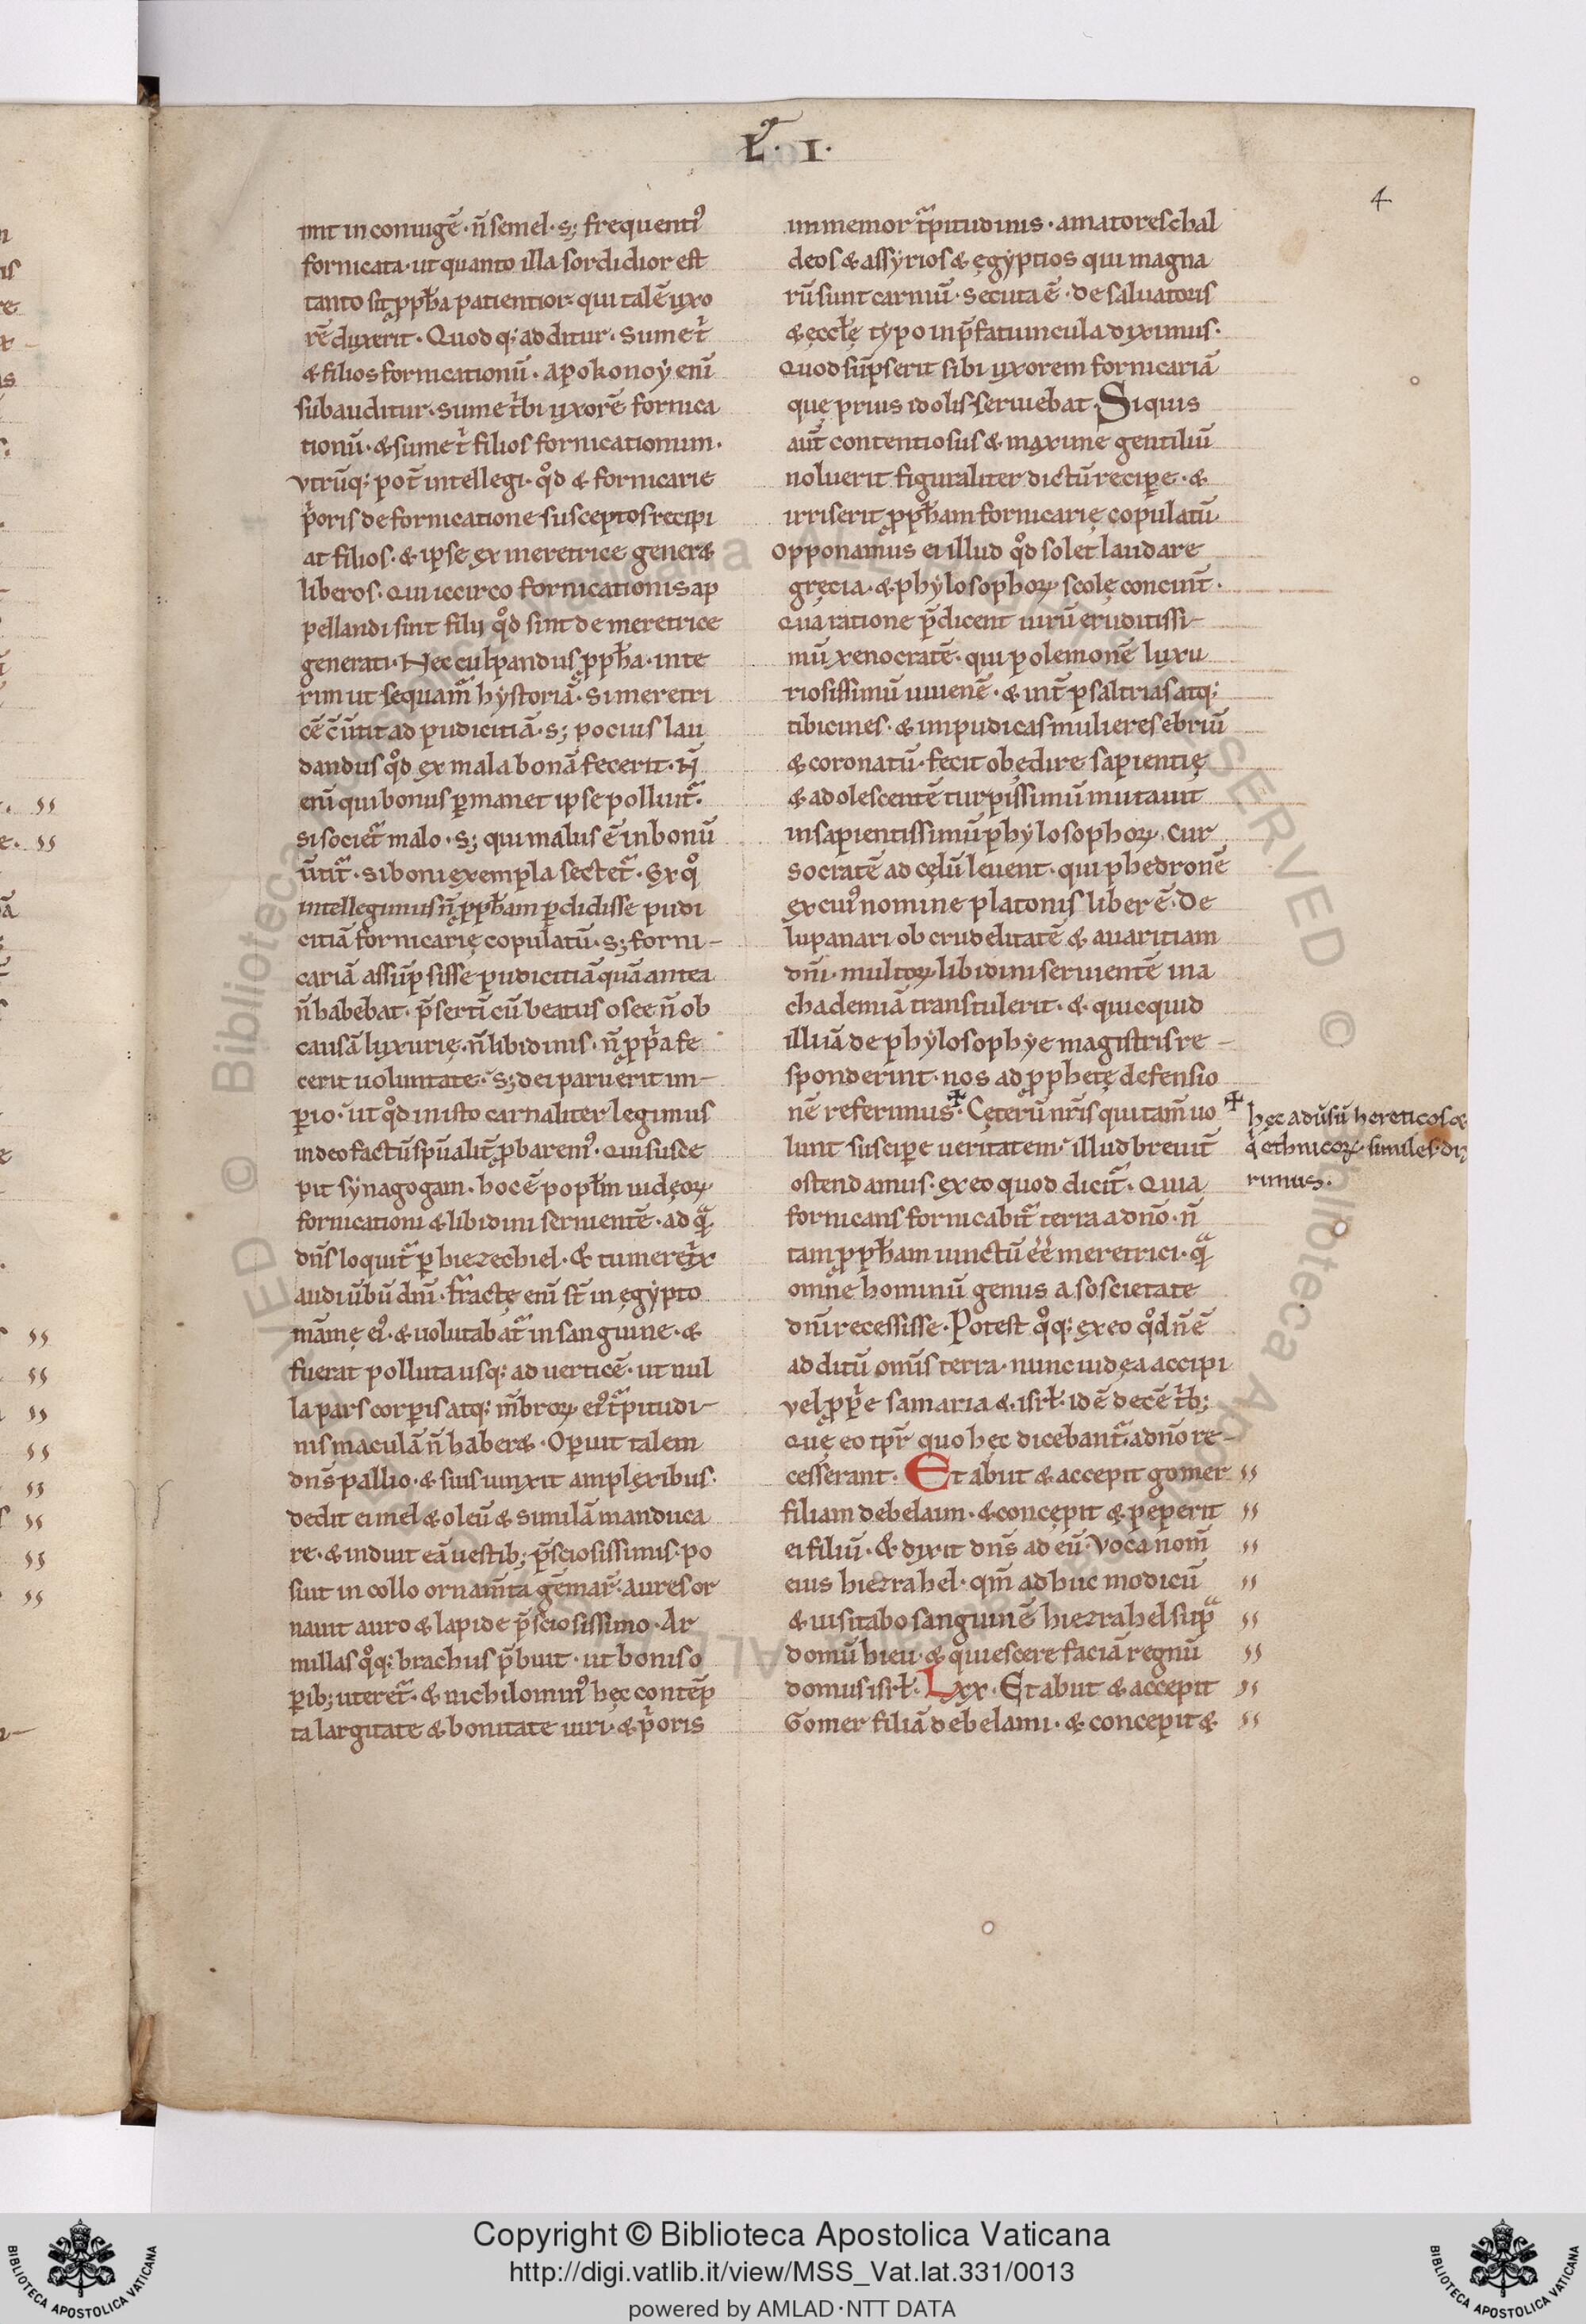 L. I.
4
nit in coniugē· n̄ semel· s; frequentiꝰ
fornicata· ut quanto illa sordidior est
tanto sit ꝓpħa patientior· qui talē uxo
rē duxerit· Quod q; additur· Sume t̕
& filios fornicationū· apokonoy enī
subauditur· sume t̕bi uxorē fornica
tionū· & sume t̕ filios fornicationum·
vtrūq; pot̄ intellegi· qͦd & fornicarie
p̕oris de fornicatione susceptos recipi
at filios· & ipse ex meretrice gener&
liberos· Qui iccirco fornicationis ap
pellandi sint filii qͦd sint de meretrice
generati· Nec culpandus ꝓpħa· inte
rim ut sequam̃ hystoriā· si meretri
cē c̄ūtit ad pudicitiā· s; pocius lau
dandus qͦd ex mala bonā fecerit· N̄
enī qui bonus ꝑmanet ipse polluit᷑·
si societ᷑ malo· s; qui malus ē in bonū
ūtit᷑· si boni exempla sectet᷑· Ex qͦ
intellegimus n̄ ꝓpħam ꝑdidisse pudi
citiā fornicarię copulatū· s; forni-
cariā assūpsisse pudicitiā quā antea
n̄ habebat· p̄sertī cū beatus osee n̄ ob
causā luxurię· n̄ libidinis· n̄ ꝓp̕a fe
cerit uoluntate· s; dei paruerit im-
ꝑio· ut qͦd in isto carnaliter legimus
in deo factū sp̄ualit̄ ꝓbaremꝰ· Qui susce
pit synagogam· hoc ē popłm iudęoꝝ
fornicationi & libidini seruientē· ad qᷓ
dn̄s loquit᷑ ꝑ hiezechiel· & tu meret̕x
audi ūbū dn̄i· fractę enī st̄ in ęgypto
mām̄ę eiꝰ· & uolutabat᷑ in sanguine· &
fuerat polluta usq; ad uerticē· ut nul
la pars corꝑis atq; m̄broꝝ eiꝰ tᷓpitudi-
nis maculā n̄ haber&· Operuit talem
dn̄s pallio· & suis iunxit amplexibus·
dedit ei mel & oleū & similā manduca
re· & induit eā uestib; p̄sciosissimis· po
suit in collo ornam̄ta gēmaꝝ· aures or
nauit auro & lapide p̄sciosissimo· Ar
millas qͦq; brachiis p̄buit· ut boniso
ꝑib; uteret᷑· & nichilominꝰ hęc contēp
ta largitate & bonitate uiri· & p̕oris
inmemor tᷓpitudinis· amatores chal
deos & assyrios & ęgyptios qui magna
rū sunt carniū· secuta ē· de saluatoris
& ęcclę typo in p̄fatiuncula diximus·
Quod sūpserit sibi uxorem fornicariā
quę prius idolis seruiebat· Siquis
aut̄ contentiosus & maxime gentiliū
noluerit figuraliter dictū reciꝑe· &
irriserit ꝓpħam fornicarię copulatū
Opponamus ei illud qͦd solet laudare
gręcia· & phylosophoꝝ scolę concinīt·
Qua ratione p̄dicent uirū eruditissi-
mū xenocratē· qui polemonē luxu
riosissimū iuuenē· & int̄ psaltrias atq;
tibicines· & impudicas mulieres ebriū
& coronatū· fecit obędire sapientię
& adolescentē turpissimū mutauit
in sapientissimū phylosophoꝝ· Cur
socratē ad cęlū leuent· qui phedronē
ex cuiꝰ nomine platonis liber ē· De
lupanari ob crudelitatē & auaritiam
dn̄i· multoꝝ libidini seruientē in a
chademiā transtulerit· & quicquid
illi uā de phylosophye magistris re-
sponderint· nos ad ꝓphetę defensio
nē referimus· Cęterū nr̄is qui tam̄ uo
lunt susciꝑe ueritatem· illud breuit̄
ostendamus· ex eo quod dicit᷑· Quia
fornicans fornicabit᷑ terra a dn̄o· n̄
tam ꝓpħam iunctū éé meretrici· qᷓ
omne hominū genus a soscietate
dn̄i recessisse· Potest qͦq; ex eo qͦd n̄ ē
additū omīs terra· nunc iudęa accipi
vel ꝓp̕e samaria & isrł· id ē decē t̕b;
Quę eo tp̄r quo hęc dicebant᷑· a dn̄o re-
cesserant· Et abiit & accepit gomer
filiam debelaim· & concepit & peperit
ei filiū· & dixit dn̄s ad eū· Voca nom̄
eius hiezrahel· qm̄ adhuc modicū
& uisitabo sanguinē hiezrahel supᷓ
domū hieu· & quiescere faciā regnū
domus isrł· Lxx· Et abiit & accepit
Gomer filiā debelami· & concepit &
hęc adūsū hereticos &
ethnicoꝝ similes di
rimus·
Copyright © Biblioteca Apostolica Vaticana
http://digi.vatlib.it/view/MSS_Vat.lat.331/0013
powered by AMLAD·NTT DATA
BIBLIOTECA APOSTOLICA VATICANA
BIBLIOTECA APOSTOLICA VATICANA